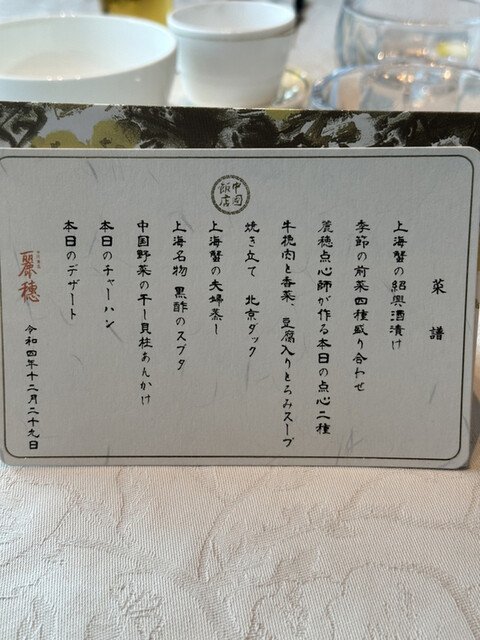 中国飯店
菜譜
上海蟹の紹興酒漬け
季節の前菜四種盛り合わせ
麗穂点心師が作る本日の点心二種
牛挽肉と香菜、豆腐入りとろみスープ
焼き立て 北京ダック
上海蟹の夫婦蒸し
上海名物 黒酢のスブタ
中国野菜の干し貝柱あんかけ
本日のチャーハン
本日のデザート
麗穂
令和四年十二月二十九日